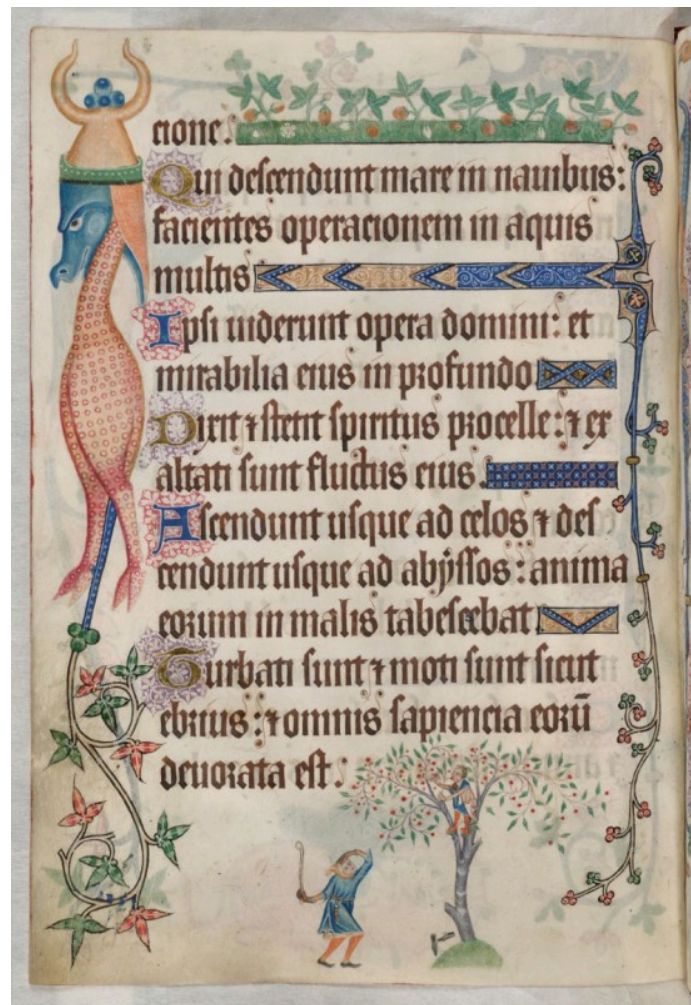 cione.
Qui descendunt mare in nauibus:
facientes operacionem in aquis
multis
Ipsi uiderunt opera domini: et
mirabilia eius in profundo
Dixit ⁊ stetit spiritus procelle: ⁊ ex
altati sunt fluctus eius.
Ascendunt usque ad celos ⁊ des
cendunt usque ad abyssos: anima
eorum in malis tabescebat
Turbati sunt ⁊ moti sunt sicut
ebrius: ⁊ omnis sapiencia eorū
deuorata est: